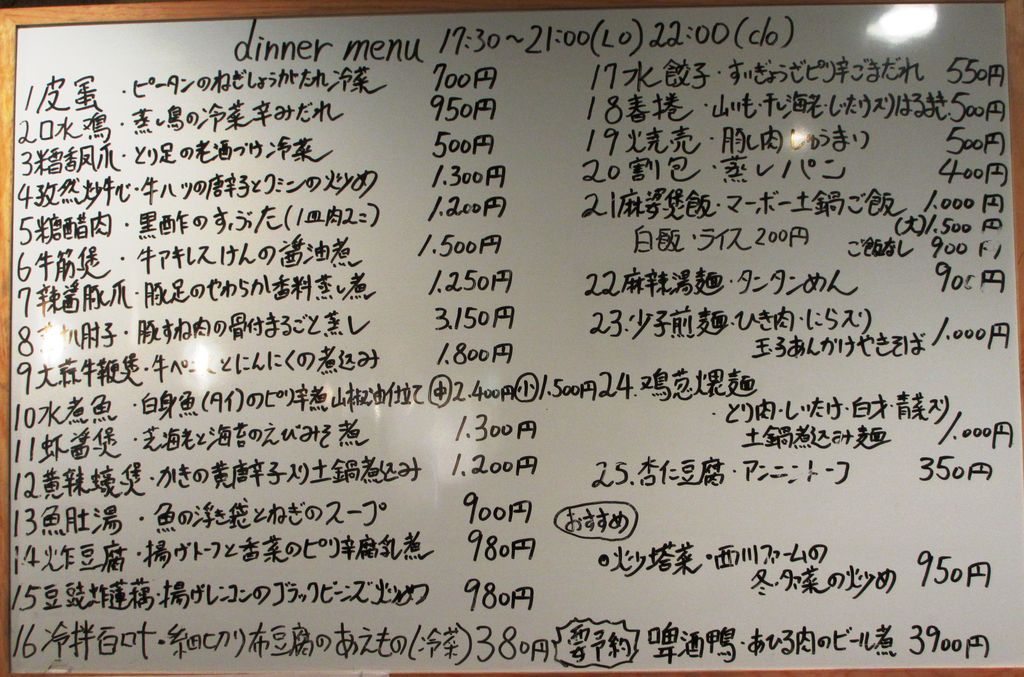 dinner menu 17:30〜21:00(Lo) 22:00(c/o)
1 皮蛋・ピータンのねぎしょうがたれ冷菜 700円
2 口水鶏・蒸し鳥の冷菜辛みだれ 950円
3 糟香鳳爪・とり足の老酒づけ冷菜 500円
4 孜然炒牛心・牛ハツの唐辛子とクミンの炒め 1.300円
5 糖醋肉・黒酢のすぶた(1皿肉2こ) 1.200円
6 牛筋煲・牛アキレスけんの醤油煮 1.500円
7 辣醤豚爪・豚足のやわらか香料蒸し煮 1.250円
8 肘子・豚すね肉の骨付まるごと蒸し 3.150円
9 大蒜牛鞭煲・牛ペニスとにんにくの煮込み 1.800円
10 水煮魚・白身魚(タイ)のピリ辛煮山椒油仕立て 中2.400円 小1.500円
11 虾醤煲・芝海老と海苔のえびみそ煮 1.300円
12 黄辣蠔煲・かきの黄唐辛子入り土鍋煮込み 1.200円
13 魚肚湯・魚の浮き袋とねぎのスープ 900円
14 炸豆腐・揚げトーフと香菜のピリ辛腐乳煮 980円
15 豆豉炸蓮藕・揚げレンコンのブラックビーンズ炒め 980円
16 冷拌百叶・細切り布豆腐のあえもの(冷菜) 380円
17 水餃子・すいぎょうざピリ辛ごまだれ 550円
18 春捲・山いも・干し海老・しいたけ入りはるまき 500円
19 焼売・豚し肉しゅうまい 500円
20 割包・蒸しパン 400円
21 麻婆煲飯・マーボー土鍋ご飯 1.000円
(大)1.500円
白飯・ライス 200円 ご飯なし 900円
22 麻辣湯麺・タンタンめん 900円
23. 少子煎麺・ひき肉・にら入り
玉子あんかけやきそば 1.000円
24. 鶏葱煨麺
・とり肉・しいたけ・白才・青菜入り
土鍋煮込み麺 1.000円
25. 杏仁豆腐・アンニントーフ 350円
おすすめ
●炒塔菜・西川ファームの
冬菜の炒め 950円
要予約 啤酒鴨・あひる肉のビール煮 3900円